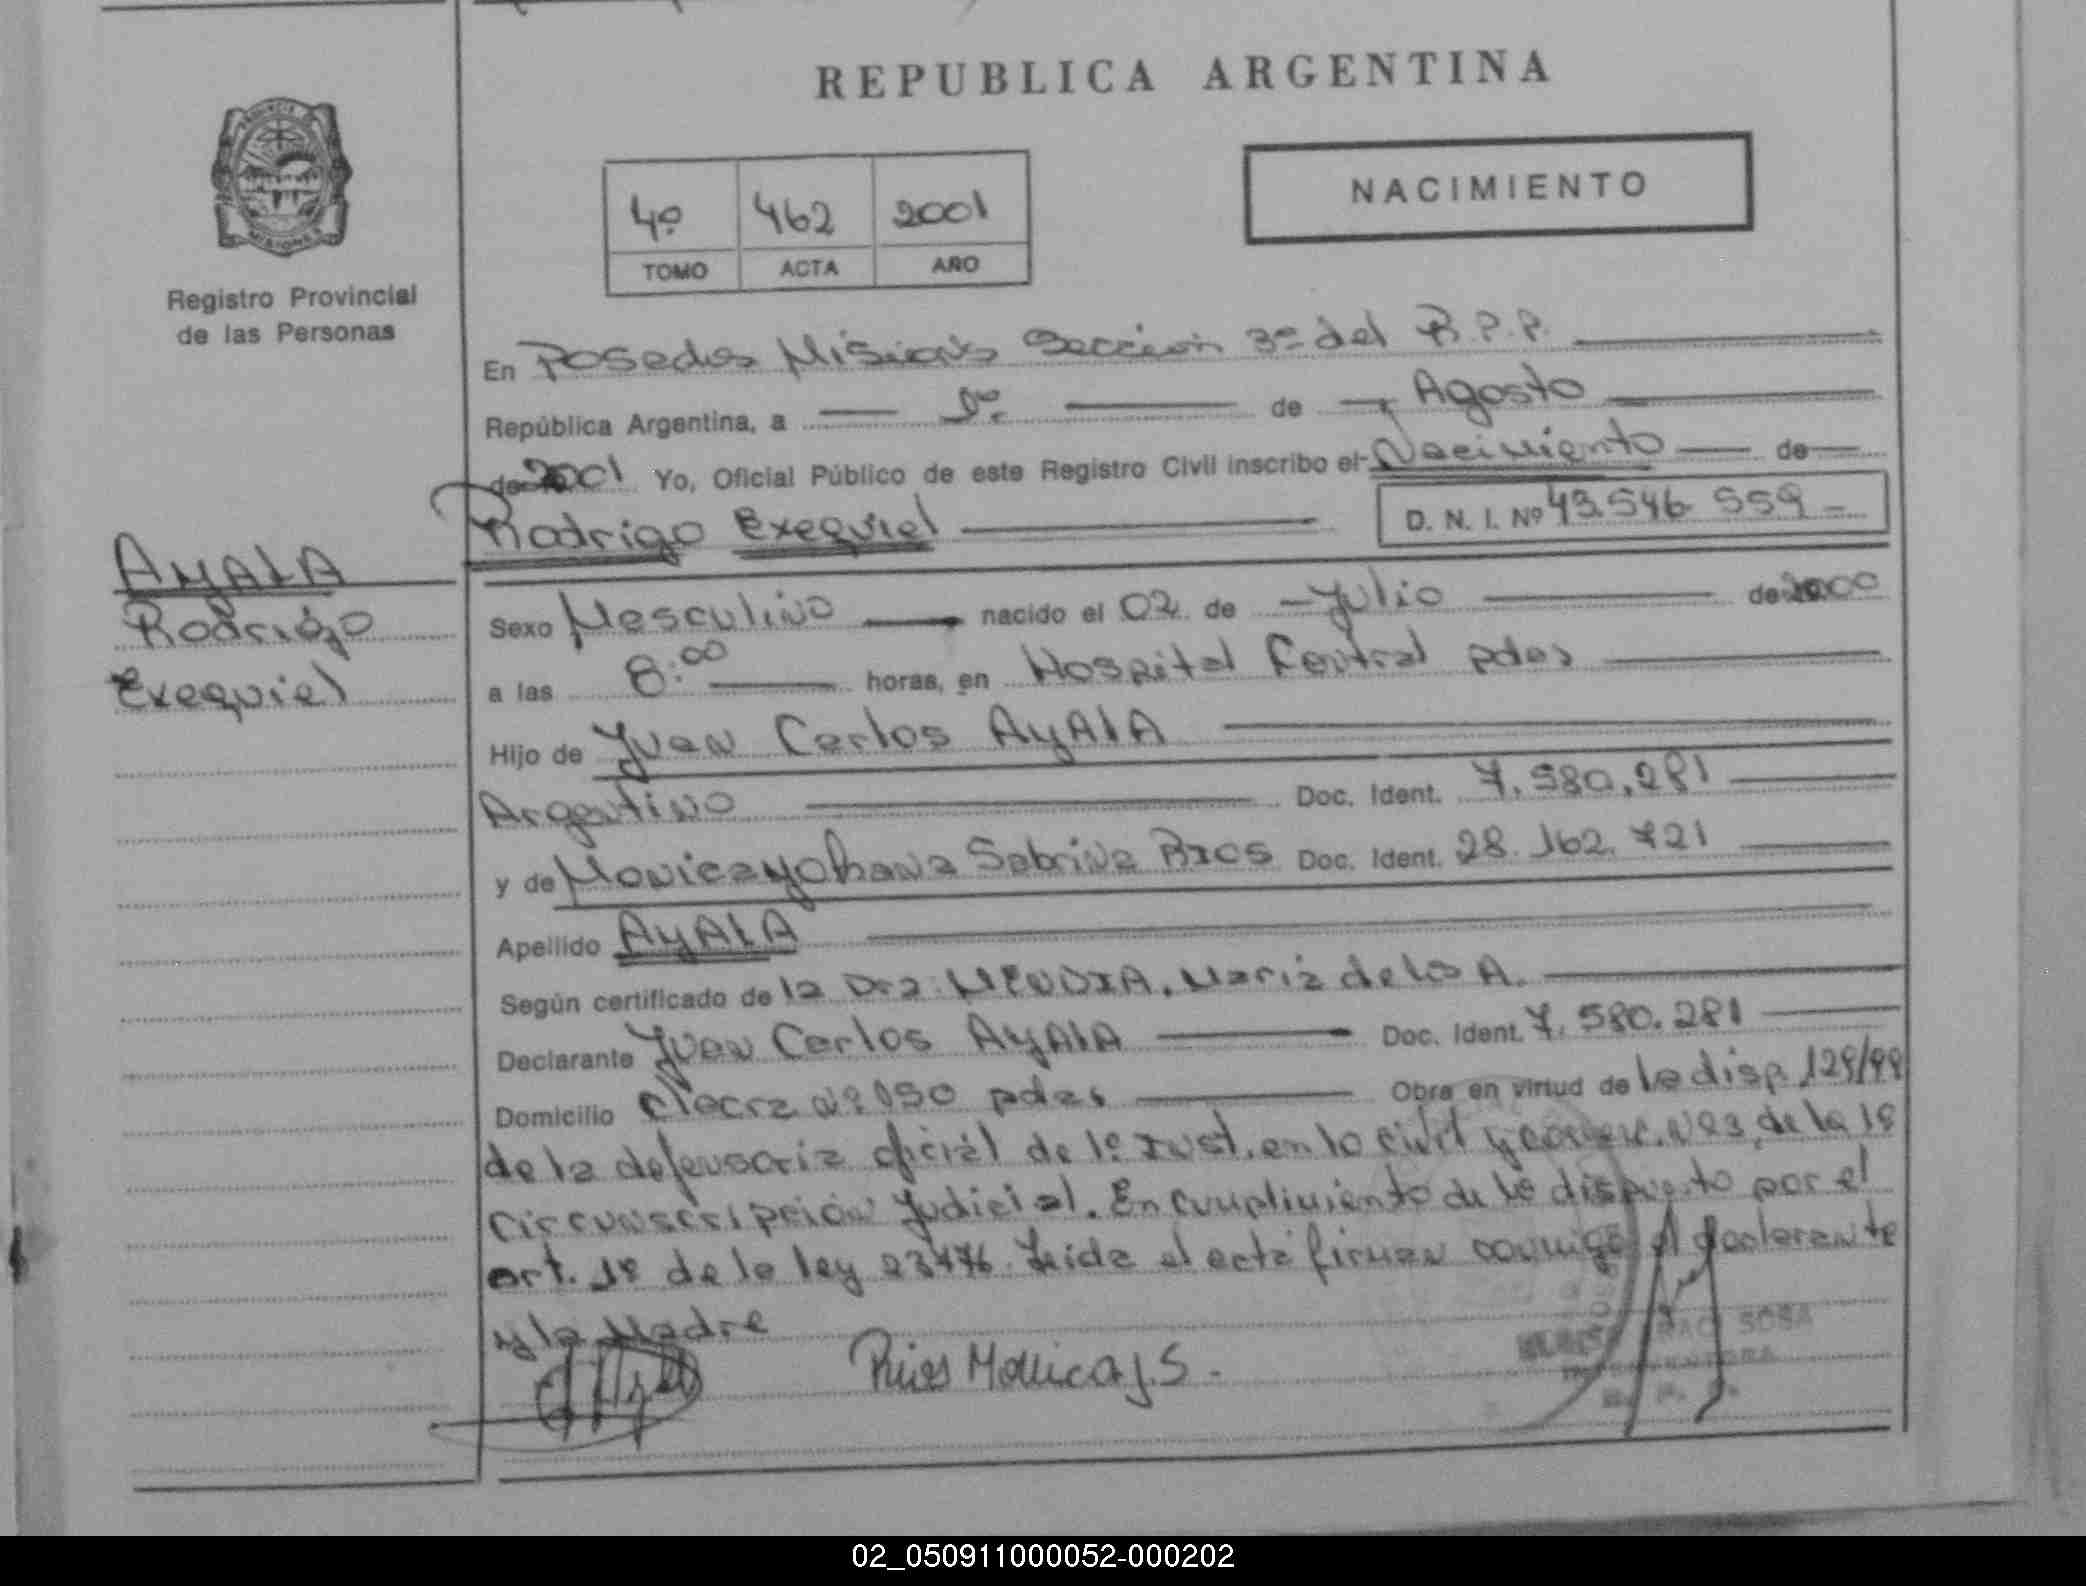 REPUBLICA ARGENTINA
PROVINCIA DE
MISIONES
Registro Provincial
de las Personas
4º 462 2001
TOMO ACTA AÑO
NACIMIENTO
En Posadas Misiones Sección 3º del R.P.P.
República Argentina, a 1º. de Agosto
de 2001 Yo, Oficial Público de este Registro Civil inscribo el Nacimiento de
Rodrigo Exequiel D. N. I. Nº 43.546.559
AyALA
Rodrigo
Exequiel
Sexo Masculino nacido el 02 de Julio de 2000
a las 8:00 horas, en Hospital Central pdas
Hijo de Juan Carlos AyALA
Argentino Doc. Ident. 7.580.281
y de Monica yohana Sabrina Rios Doc. Ident. 28.162.721
Apellido AyALA
Según certificado de la Dra: MENDIA. Maria de los A.
Declarante Juan Carlos AyALA Doc. Ident. 7.580.281
Domicilio chacra Nº 150 pdas Obra en virtud de la disp. 129/99
de la defensoria oficial de 1º Inst. en lo civil y comerc. Nº 3, de la 1º
Circunscripción Judicial. En cumplimiento de lo dispuesto por el
art. 1º de la ley 23776. Leida el acta firman conmigo el declarante
y la Madre
Rios Monica y. S.
SOSA
R. P. P.
02_050911000052-000202